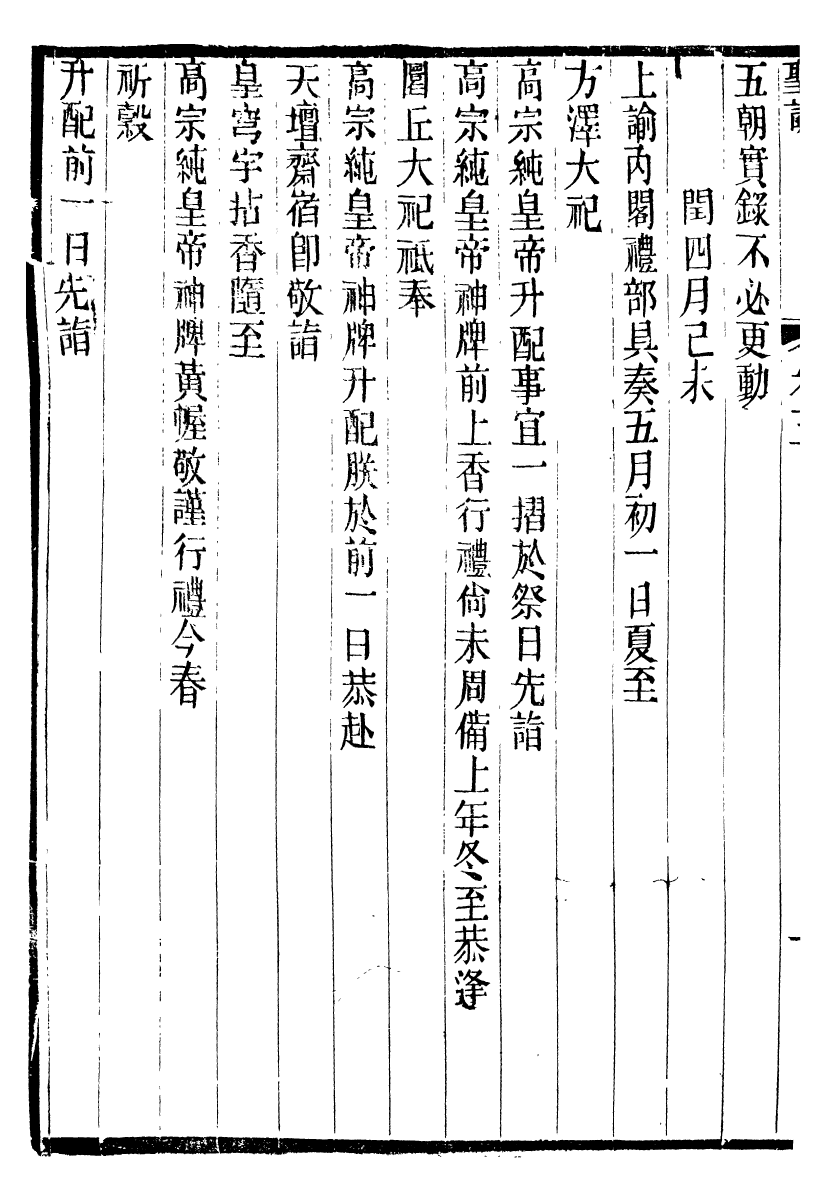 五朝實錄不必更動
閏四月己未
上諭內閣禮部具奏五月初一日夏至
方澤大祀
高宗純皇帝升配事宜一摺於祭日先詣
高宗純皇帝神牌前上香行禮尚未周備上年冬至恭逢
圜丘大祀祗奉
高宗純皇帝神牌升配朕於前一日恭赴
天壇齋宿卽敬詣
皇穹宇拈香隨至
高宗純皇帝神牌黃幄敬謹行禮今春
祈穀
升配前一日先詣